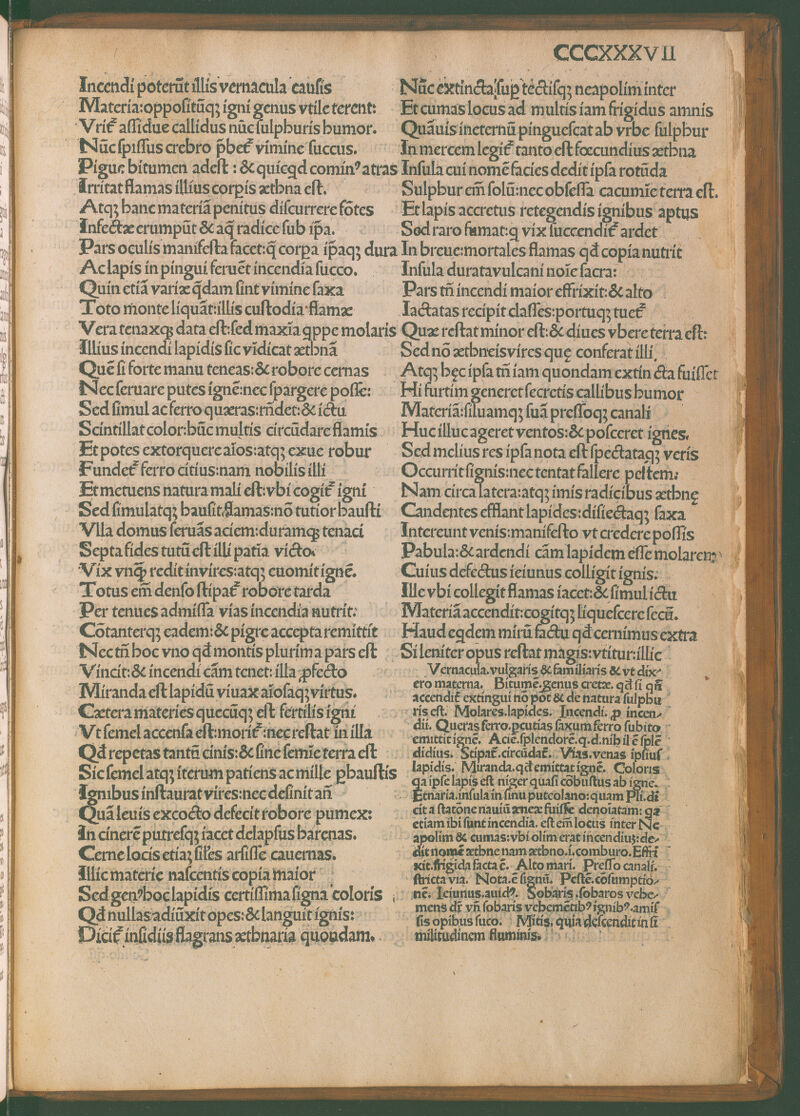 CCCXXXVII
Incendi poterūt illis vernacula causis
Materia:oppositūq; igni genus vtile terent:
Vrit᷑ assidue callidus nūc sulphuris humor.
Nūc spissus crebro p̄bet᷑ vimine succus.
Pigue bitumen adest : & quicqd comin⁹ atras
Irritat flamas illius corpis æthna est.
Atq; hanc materiā penitus discurrere fōtes
Infectæ erumpūt & aq̄ radice sub ip̄a.
Pars oculis manifesta facet:q̄ corpa ip̄aq; dura
Ac lapis in pingui feruēt incendia succo.
Quin etiā variæ q̄dam sint vimine saxa
Toto monte liquāt:illis custodia flamæ
Vera tenaxq; data est:sed maxīa qppe molaris
Illius incendi lapidis sic vidicat æthnā
Quē si forte manu teneas:& robore cernas
Nec seruare putes ignē:nec spargere posse:
Sed simul ac ferro quæras:rn̄det:& ictu
Scintillat color:hūc multis circūdare flamis
Et potes extorquere aīos:atq; exue robur
Fundet᷑ ferro citius:nam nobilis illi
Et metuens natura mali est:vbi cogit᷑ igni
Sed simulatq; hausit flamas:nō tutior hausti
Vlla domus seruās aciem:duramq; tenaci
Septa fides tutū est illi patīa victo.
Vix vnq̄ redit in vires:atq; euomit ignē.
Totus em̄ denso stipat᷑ robore tarda
Per tenues admissa vias incendia nutrit:
Cōtanterq; eadem:& pigre accepta remittit
Nec tn̄ hoc vno qd montis plurima pars est
Vincit:& incendi cām tenet: illa ꝓfecto
Miranda est lapidū viuax aīosaq; virtus.
Cætera materies quecūq; est fertilis igni
Vt semel accensa est:morit᷑:nec restat in illa
Qd repetas tantū cinis:& sine semīe terra est
Sic semel atq; iterum patiens ac mille phaustis
Ignibus instaurat vires:nec definit an̄
Quā leuis excocto defecit robore pumex:
In cinerē putresq; iacet delapsus harenas.
Cerne locis etiā; siles arsisse cauernas.
Illic materie nascentis copia maior
Sed gen⁹ hoc lapidis certissima signa coloris
Qd nullas adiūxit opes:& languit ignis:
Dicit᷑ insidiis flagrans æthnaria quondam.
Nūc extincta sup tectisq; neapolim inter
Et cumas locus ad multis iam frigidus annis
Quāuis ineternū pinguescat ab vrbe sulphur
In mercem legit᷑ tanto est fœcundius æthna
Insula cui nomē facies dedit ipsa rotūda
Sulphur em̄ solū:nec obsessa cacumīe terra est.
Et lapis accretus retegendis ignibus aptus
Sed raro fumat:q vix succendit᷑ ardet
In breue:mortales flamas qd copia nutrit
Insula durata vulcani noīe sacra:
Pars tn̄ incendi maior effrixit:& alto
Iactatas recipit classes:portuq; tuet᷑
Quæ restat minor est:& diues vbere terra est:
Sed nō æthneis vires que conferat illi.
Atq; hęc ipsa tn̄ iam quondam extincta fuisset
Hi furtim generet secretis callibus humor
Materiā:siluamq; suā pressoq; canali
Huc illuc ageret ventos:& posceret ignes.
Sed melius res ipsa nota est spectataq; veris
Occurrit signis:nec tentat fallere pestem:
Nam circa latera:atq; imis radicibus æthnę
Candentes efflant lapides:disiectaq; saxa
Intereunt venis:manifesto vt credere possis
Pabula:& ardendi cām lapidem esse molarem
Cuius defectus ieiunus colligit ignis:
Ille vbi collegit flamas iacet:& simul ictu
Materiā accendit:cogitq; liquescere secū.
Haud eqdem mirū factu qd cernimus extra
Si leniter opus restat magis:vtitur:illic
Vernacula.vulgaris & familiaris & vt dix⸗
ero materna. Bitumē.genus cretæ. qd si qn̄
accendit᷑ extingui nō pōt & de natura sulphu
ris est. Molares.lapides. Incendi. ꝓ incen⸗
dii. Queras ferro.pcutias saxum ferro subito
emittit ignē. Aciē.splendorē.q.d.nihil ē splē
didius. Stipat᷑.circūdat᷑. Vias.venas ipsius
lapidis. Miranda.qd emittat ignē. Coloris
qa ipse lapis est niger quasi cōbustus ab igne.
Etnaria.insula in sinu puteolano:quam Pli.di
cit a statōne nauiū æneæ fuisse denoīatam: qa
etiam ibi sunt incendia. est em̄ locus inter Ne
apolim & cumas:vbi olim erat incendiū;:de⸗
dit nomē æthne nam æthno.i.comburo.Effri
xit.frigida facta ē. Alto mari. Presso canali.
stricta via. Nota.ē signū. Pestē.cōsumptio⸗
nē. Ieiunus.auid⁹. Sobaris.sobaros vehe⸗
mens dr̄ vn̄ sobaris vehemētib⁹ ignib⁹.amis
sis opibus suco. Mitis. quia descendit in si
militudinem fluminis.